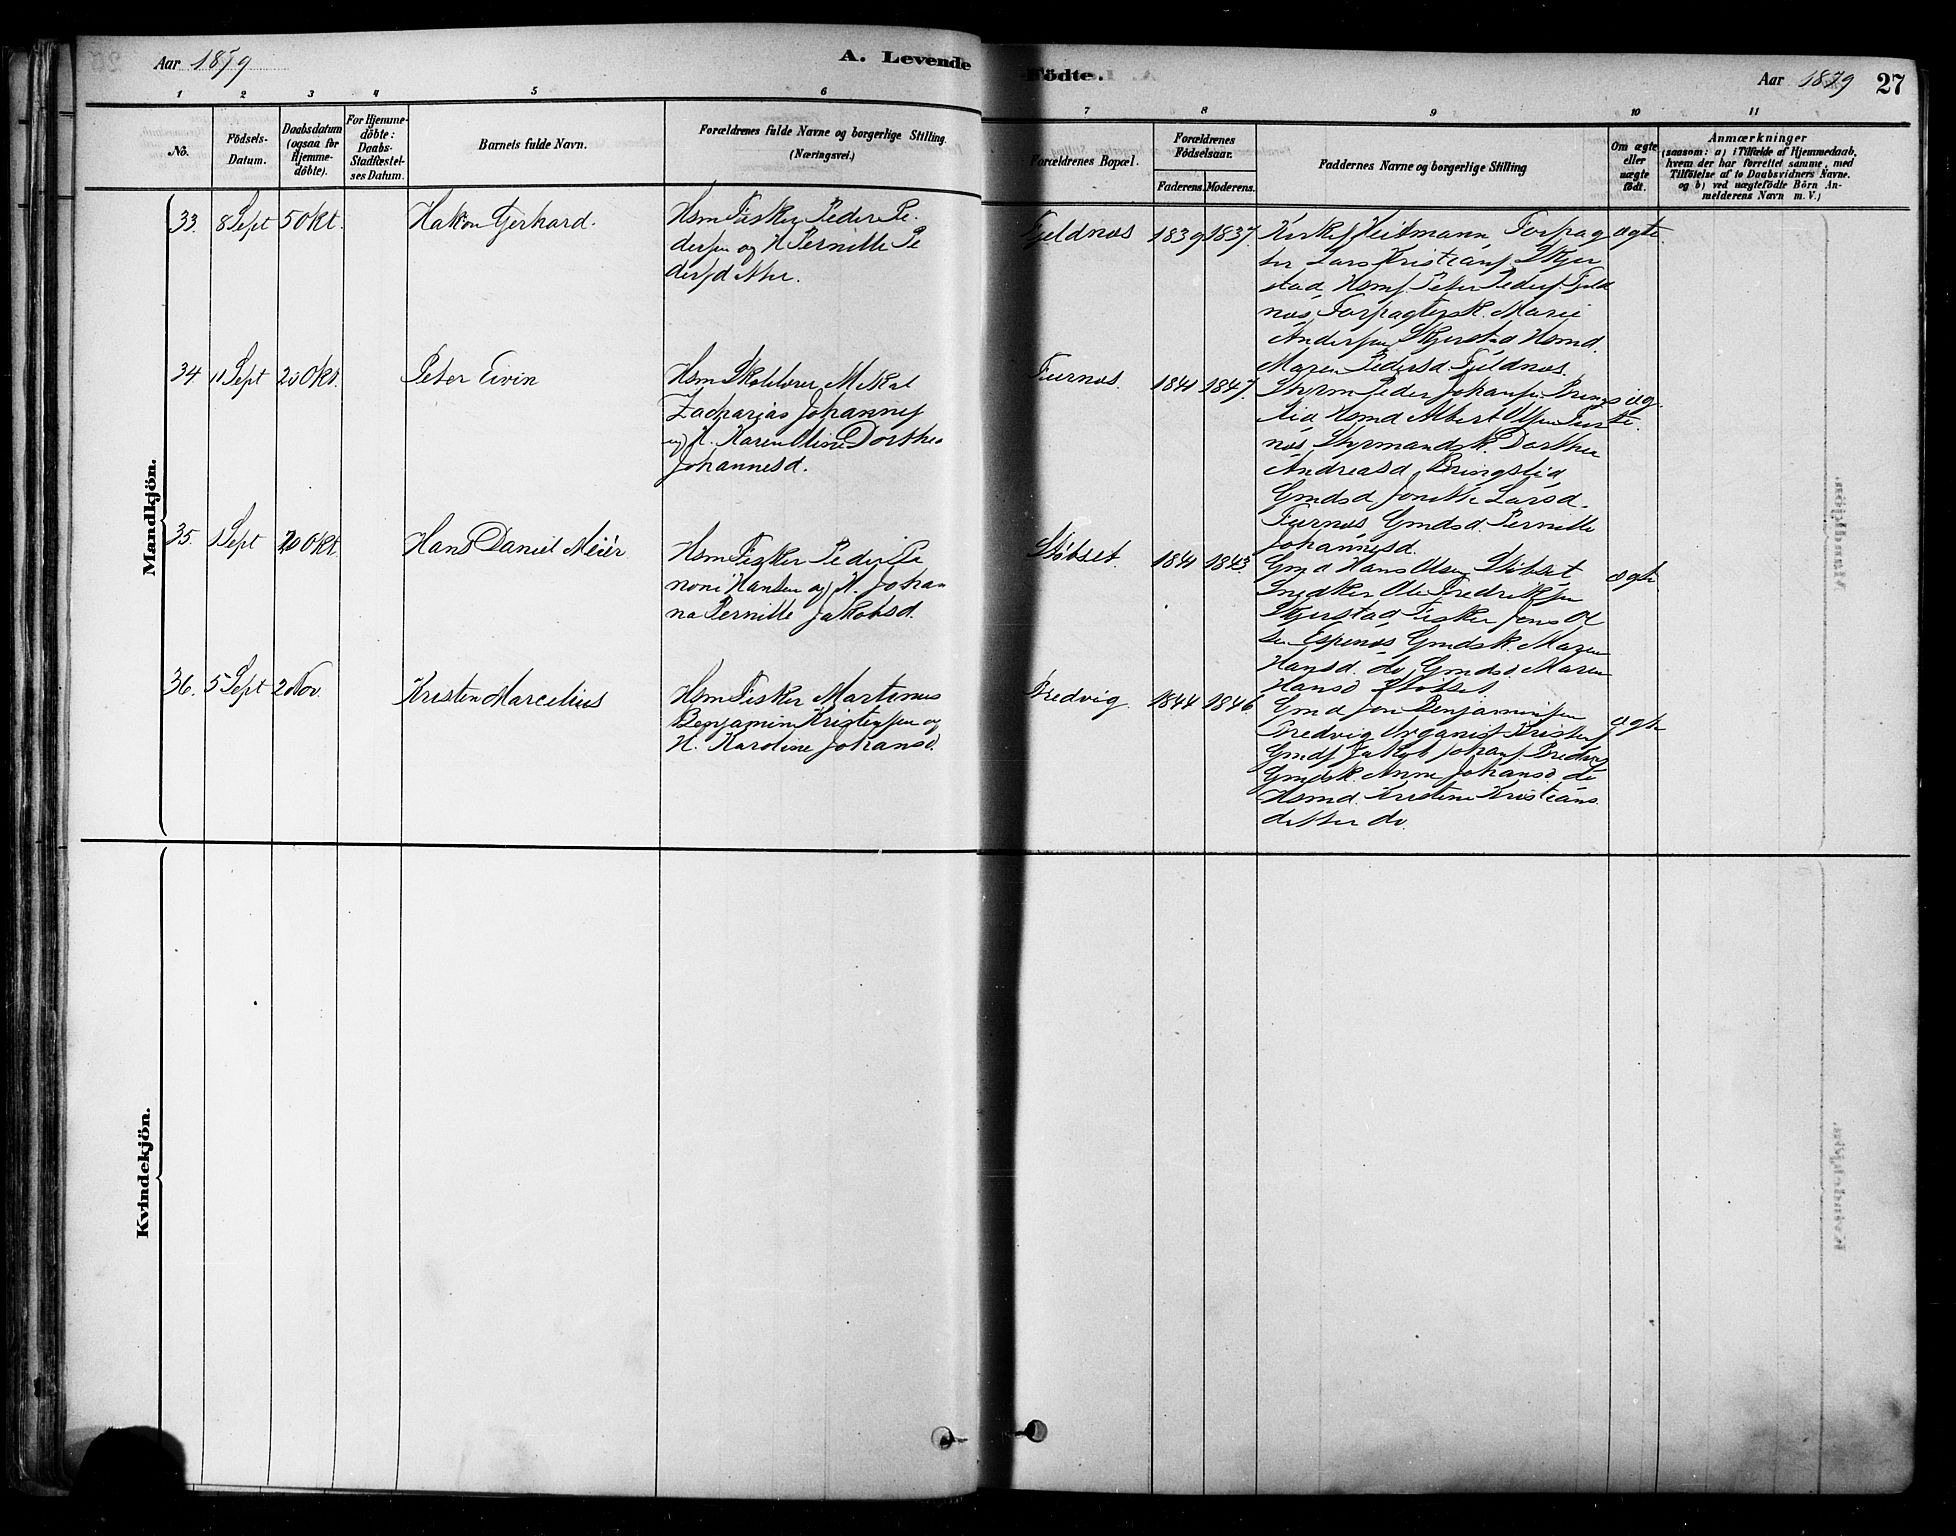 Aar 1879
A. Levende
Födte.
Aar 1879
27
1 2 3 4 5 6 7 8 9 10 11
No.
Födsels-Datum.
Daabsdatum (ogsaa for Hjemme-döbte).
For Hjemme-döbte: Daabs-Stadfæstel-ses Datum.
Barnets fulde Navn.
Forældrenes fulde Navne og borgerlige Stilling.
(Næringsvei.)
Forældrenes Bopæl.
Forældrenes Födselsaar.
Faderens. Moderens.
Faddernes Navne og borgerlige Stilling
Om ægte eller uægte födt.
Anmærkninger
(saasom: a) i Tilfælde af Hjemmedaab,
hvem der har forrettet samme, med
Tilföielse af to Daabsvidners Navne.
og b) ved uægtefödte Börn An-
melderens Navn m. V.)
Mandkjön.
33. 8 Sept 5 Okt. Hakon Gerhard.
Hsm Fisker Peder Pe-
dersen og H. Pernille Pe
dersdatter.
Fjeldnæs 1839 1837
Kirkes. Heitmann Forpag
ter Lars Kristians. Skjer
stad Hsms. Peter Peders. Fjeld
næs, Forpagtersk. Marie
Andersen Skjerstad Hsmd.
Maren Pedersd Fjeldnæs.
ægte.
34 11 Sept 20 Okt. Peter Eivin
Hsm Skolelærer Mikal
Zacharias Johannes
og H. Karen Oline Dorthea
Johannesd.
Furnæs. 1841 1847.
Styrm. Peder Johansen Brings
lid Hsmd Albert Olsen Fur
næs, Styrmandsk. Dorthea
Andreasd Bringslid
Gmdsd Jonette Larsd.
Furnæs Gmdsd. Pernille
Johannesd.
æg-
te.
35. 1 Sept 20 Okt. Hans Daniel Meier
Hsm Fisker Peder Pe
noni Hansen og H. Johan
na Pernille Jakobsd.
Støbset. 1841 1843.
Gmd Hans Olsen Støbset
Snedker Ole Fredriksen
Skjerstad Fisker Jens Ol
sen Espenæs Gmdsk. Maren
Hansd. do Gmdsd Maren
Hansd Støbset.
ægte.
36. 5 Sept 2 Nov. Kristen Marcelius
Hsm Fisker Martinus
Benjamin Kristensen og
H. Karoline Johansd.
Bredvig. 1844 1846
Gmd Jon Benjaminsen
Bredvig Organist Kristens
Gmds Jakob Johans. Bredvig
Gmdsk. Anne Johansd. do
Hsmd. Kristine Kristians
datter do.
ægte
Kvindekjön.